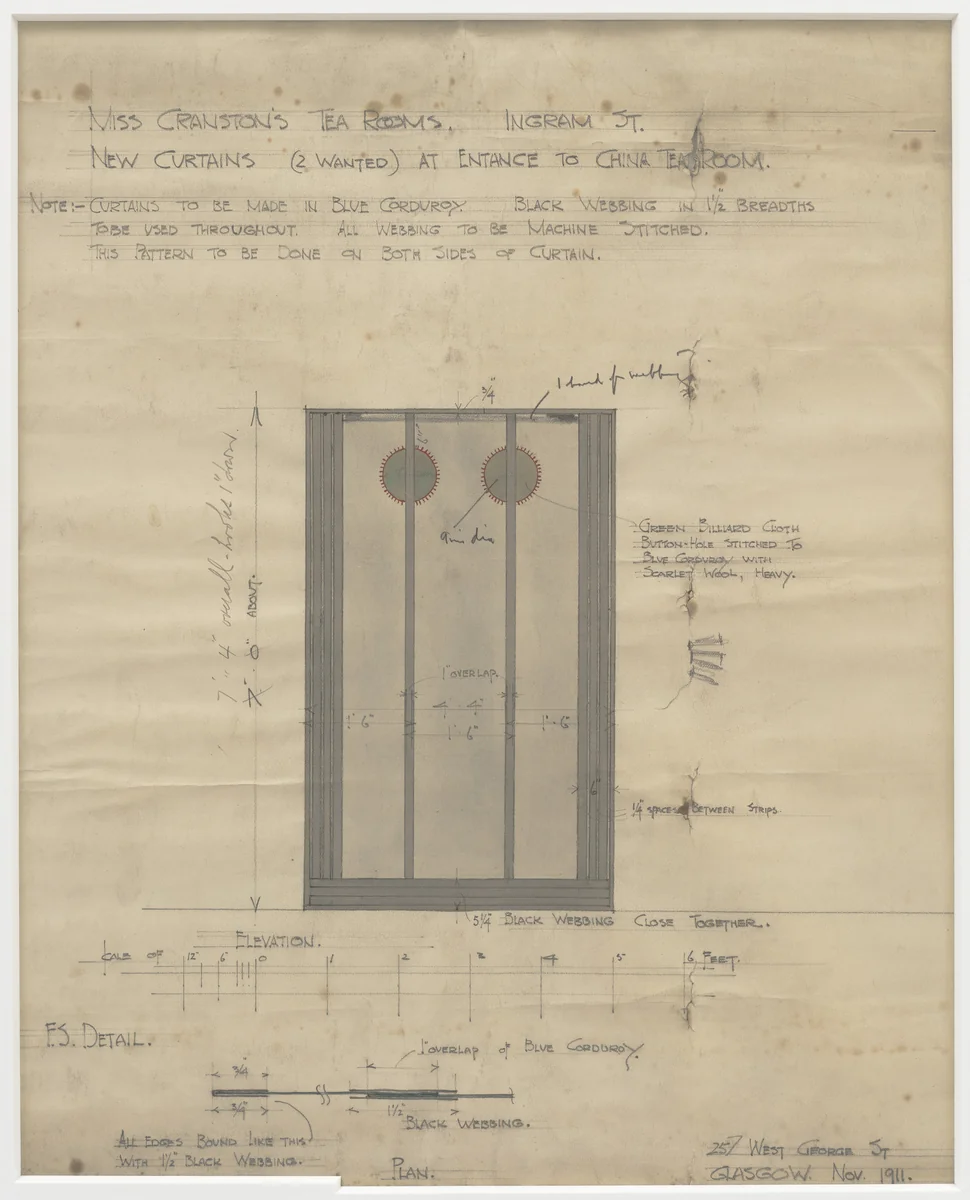 MISS CRANSTON'S TEA ROOMS. INGRAM ST.
NEW CURTAINS (2 WANTED) AT ENTANCE TO CHINA TEA ROOM.
NOTE:- CURTAINS TO BE MADE IN BLUE CORDUROY. BLACK WEBBING IN 1½" BREADTHS
TO BE USED THROUGHOUT. ALL WEBBING TO BE MACHINE STITCHED.
THIS PATTERN TO BE DONE ON BOTH SIDES OF CURTAIN.
3/4"
1 band of webbing
7'. 4" overall - hooks 1" down.
ABOUT.
9in dia
GREEN BILLIARD CLOTH
BUTTON-HOLE STITCHED TO
BLUE CORDUROY WITH
SCARLET WOOL, HEAVY.
1" OVERLAP.
4'. 4"
1'. 6"
1'. 6"
1'. 6"
6"
1/4" SPACES BETWEEN STRIPS.
5¼" BLACK WEBBING CLOSE TOGETHER.
ELEVATION.
SCALE OF 12" 6" 0 1 2 3 4 5 6 FEET.
F.S. DETAIL.
1" OVERLAP OF BLUE CORDUROY.
3/4"
3/4"
1½"
BLACK WEBBING.
ALL EDGES BOUND LIKE THIS
WITH 1½" BLACK WEBBING.
PLAN.
257 WEST GEORGE ST
GLASGOW. NOV. 1911.